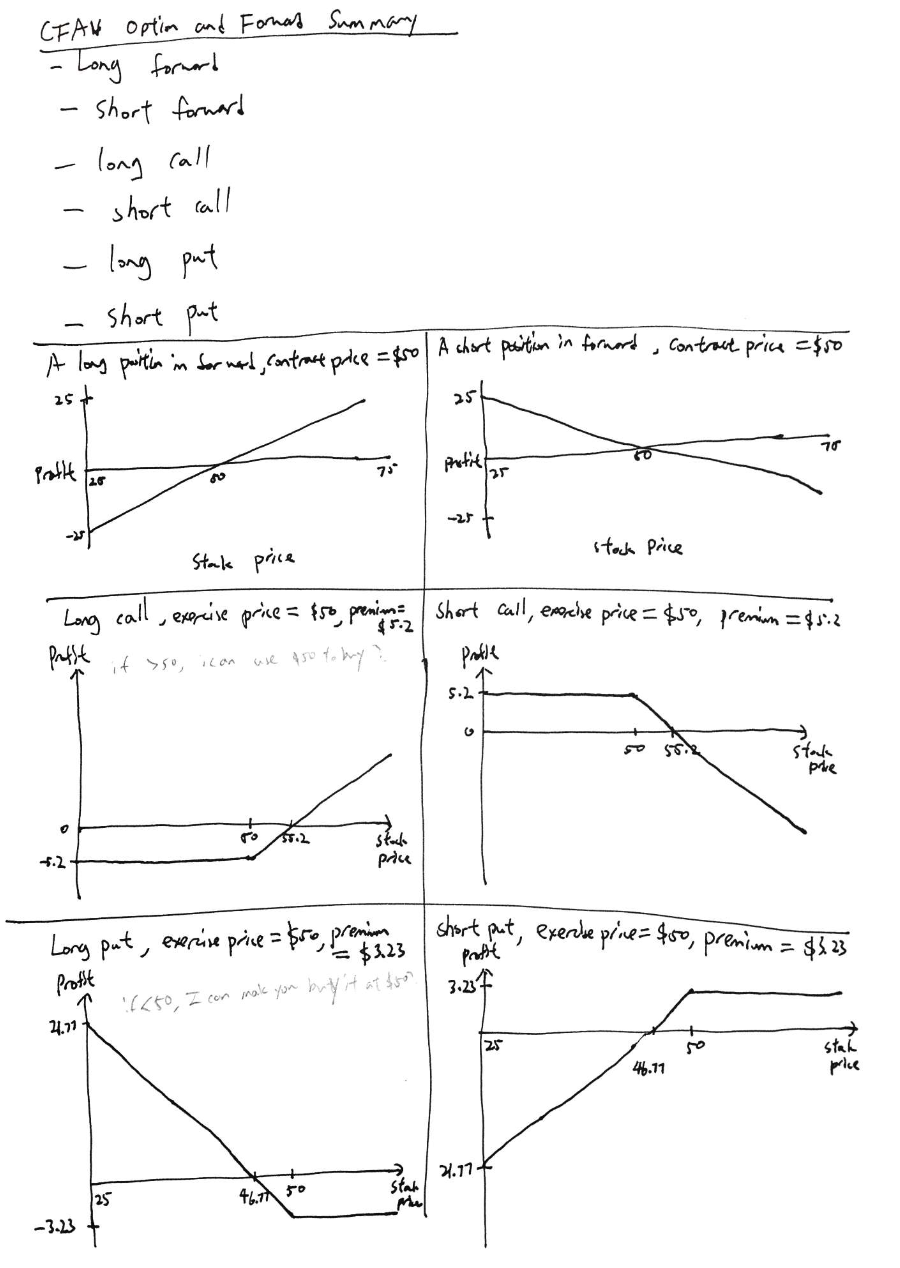 Option and Forward Summary
- Long forward
- Short forward
- long call
- short call
- long put
- short put
A long position in forward, contract price = $50
25
Profit
25
50
75
-25
Stock price
A short position in forward, contract price = $50
25
Profit
25
50
75
-25
Stock Price
Long call, exercise price = $50, premium =
$5.2
Profit
if >50, i can use $50 to buy it
0
50
55.2
Stock
price
-5.2
Short call, exercise price = $50, premium = $5.2
Profit
5.2
0
50
55.2
Stock
price
Long put, exercise price = $50, premium
= $3.23
Profit
if <50, I can make you buy it at $50
21.77
25
46.77
50
Stock
price
-3.23
Short put, exercise price = $50, premium = $3.23
Profit
3.23
25
46.77
50
Stock
price
21.77